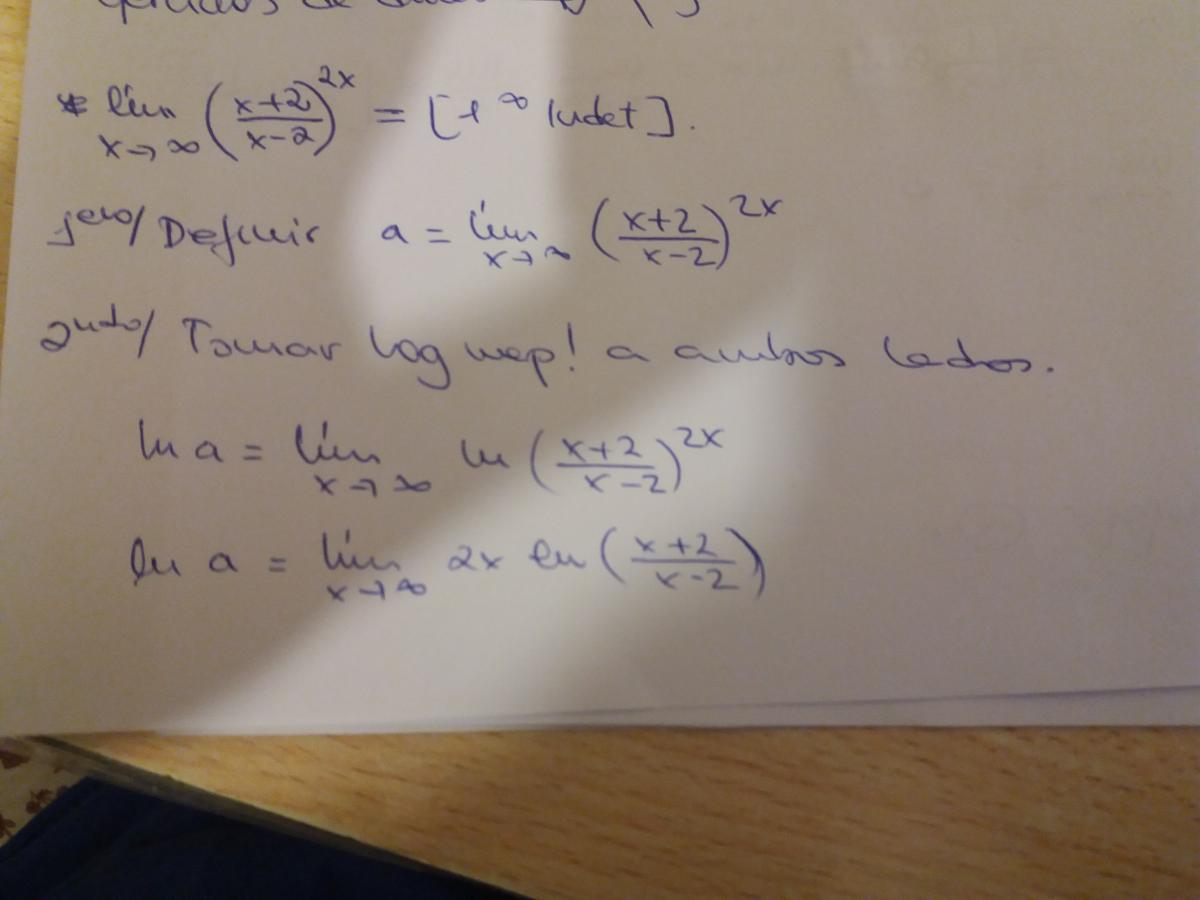 ejercicios de
* lím x→∞ (x+2/x-2)^2x = [1^∞ Indet].
1ero/ Definir a = lím x→∞ (x+2/x-2)^2x
2ndo/ Tomar log nep! a ambos lados.
ln a = lím x→∞ ln (x+2/x-2)^2x
ln a = lím x→∞ 2x ln (x+2/x-2)